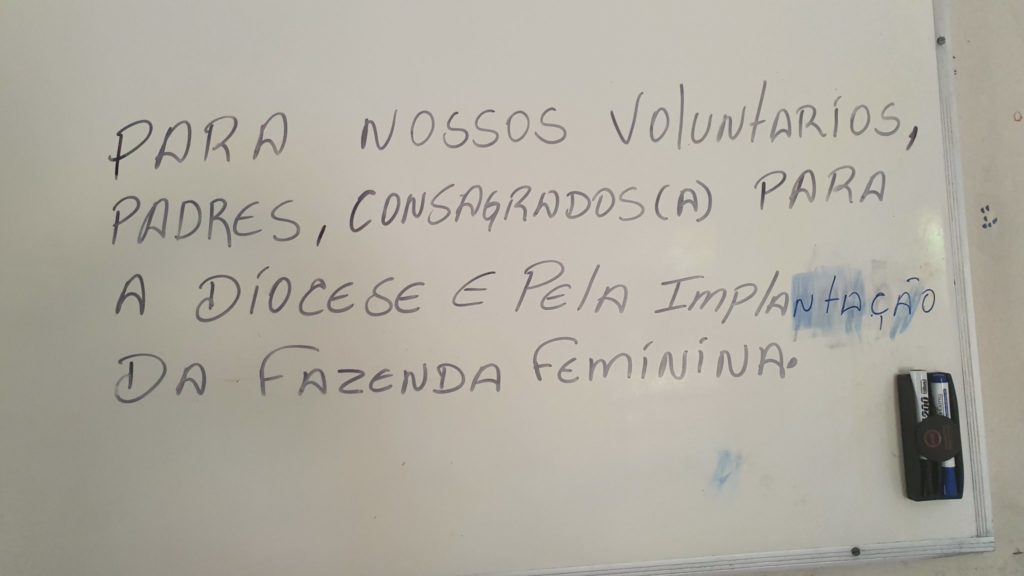 PARA NOSSOS VOLUNTARIOS,
PADRES, CONSAGRADOS(A) PARA
A DIOCESE E PELA IMPLANTAÇÃO
DA FAZENDA FEMININA.